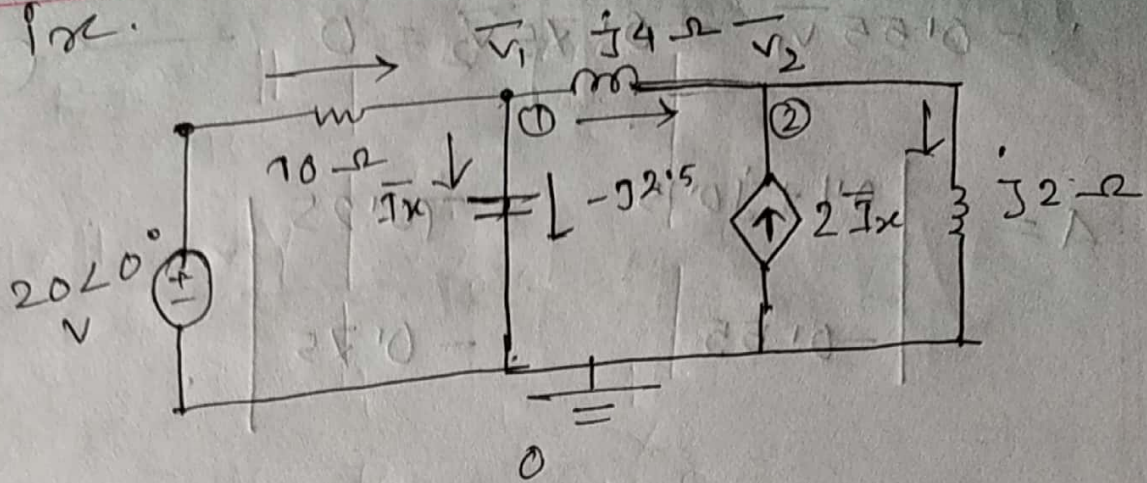 Ix.
V̄₁ j4 Ω V̄₂
① ②
10 Ω
Īx
-j2.5
2Īx
j2 Ω
20∠0°
V
+
-
0